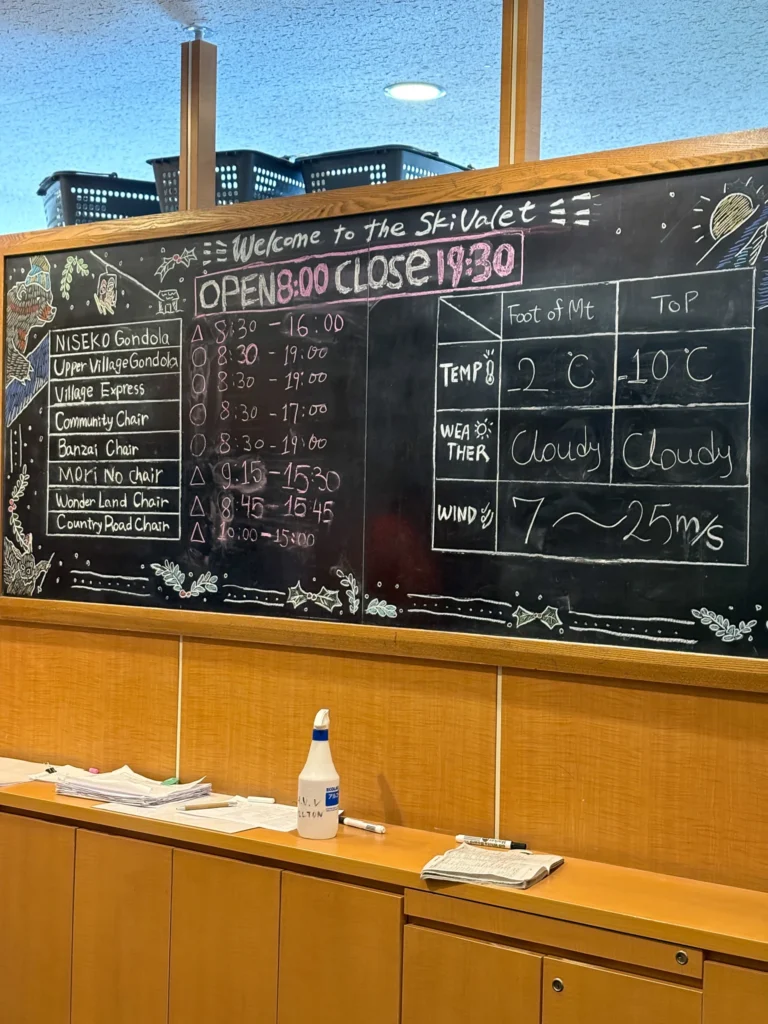 Welcome to the Ski Valet
OPEN 8:00 CLOSE 19:30
NISEKO Gondola △ 8:30 - 16:00
Upper Village Gondola ○ 8:30 - 19:00
Village Express ○ 8:30 - 19:00
Community Chair ○ 8:30 - 17:00
Banzai Chair ○ 8:30 - 19:00
MORi No chair △ 9:15 - 15:30
Wonder Land Chair △ 8:45 - 15:45
Country Road Chair △ 10:00 - 15:00
Foot of Mt TOP
TEMP -2 ℃ -10 ℃
WEATHER Cloudy Cloudy
WIND 7 〜 25 m/s